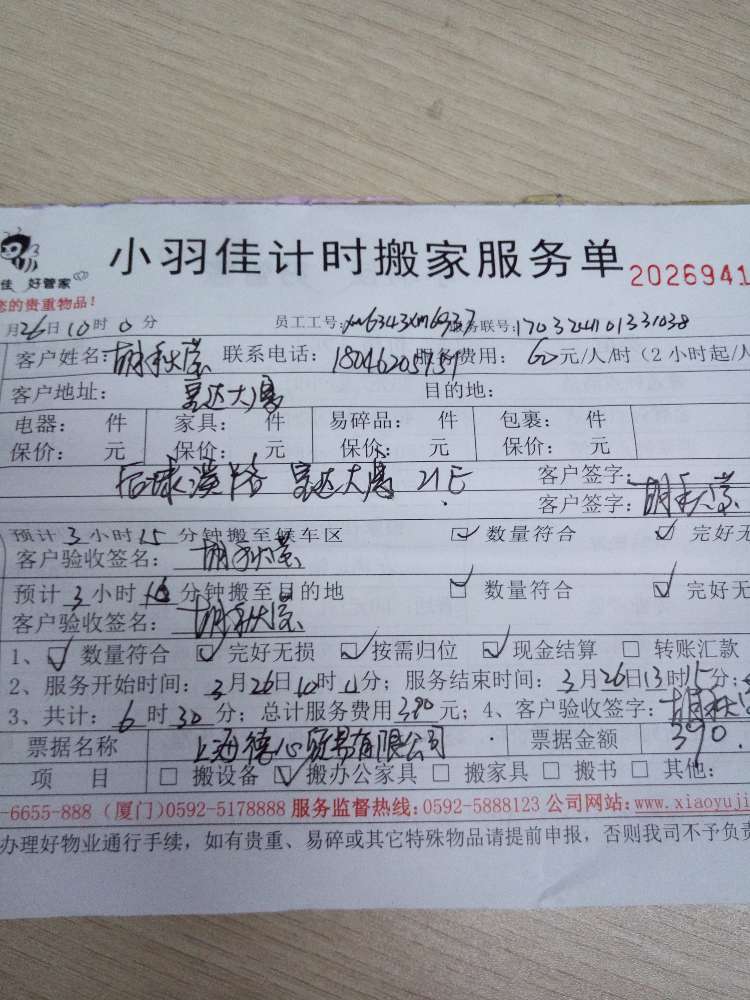 小羽佳计时搬家服务单 2026941
佳 好管家
您的贵重物品!
月26日10时0分 员工工号: 服务联号:1703244101331038
客户姓名: 联系电话:18046205751 服务费用:60元/人/时(2小时起/人
客户地址: 宝达大厦 目的地:
电器: 件 家具: 件 易碎品: 件 包裹: 件
保价: 元 保价: 元 保价: 元 保价: 元
宝达大厦 21E 客户签字:
客户签字:
预计3小时15分钟搬至候车区 ☑数量符合 ☑完好无
客户验收签名:
预计3小时 分钟搬至目的地 ☑数量符合 ☑完好无
客户验收签名:
1、☑数量符合 ☑完好无损 ☑按需归位 ☑现金结算 □转账汇款
2、服务开始时间:3月26日10时0分;服务结束时间:3月26日13时15分;
3、共计:6时30分;总计服务费用390元;4、客户验收签字:
票据名称 上海德心贸易有限公司 票据金额 390.
项 目 □搬设备 ☑搬办公家具 □搬家具 □搬书 □其他:
-6655-888 (厦门)0592-5178888 服务监督热线:0592-5888123 公司网站:www.xiaoyuji
办理好物业通行手续,如有贵重、易碎或其它特殊物品请提前申报,否则我司不予负责